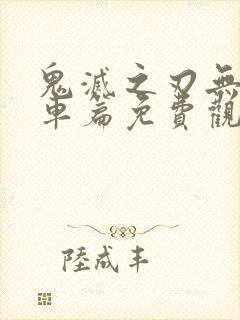 鬼滅之刃無
車篇免費觀
陸成丰